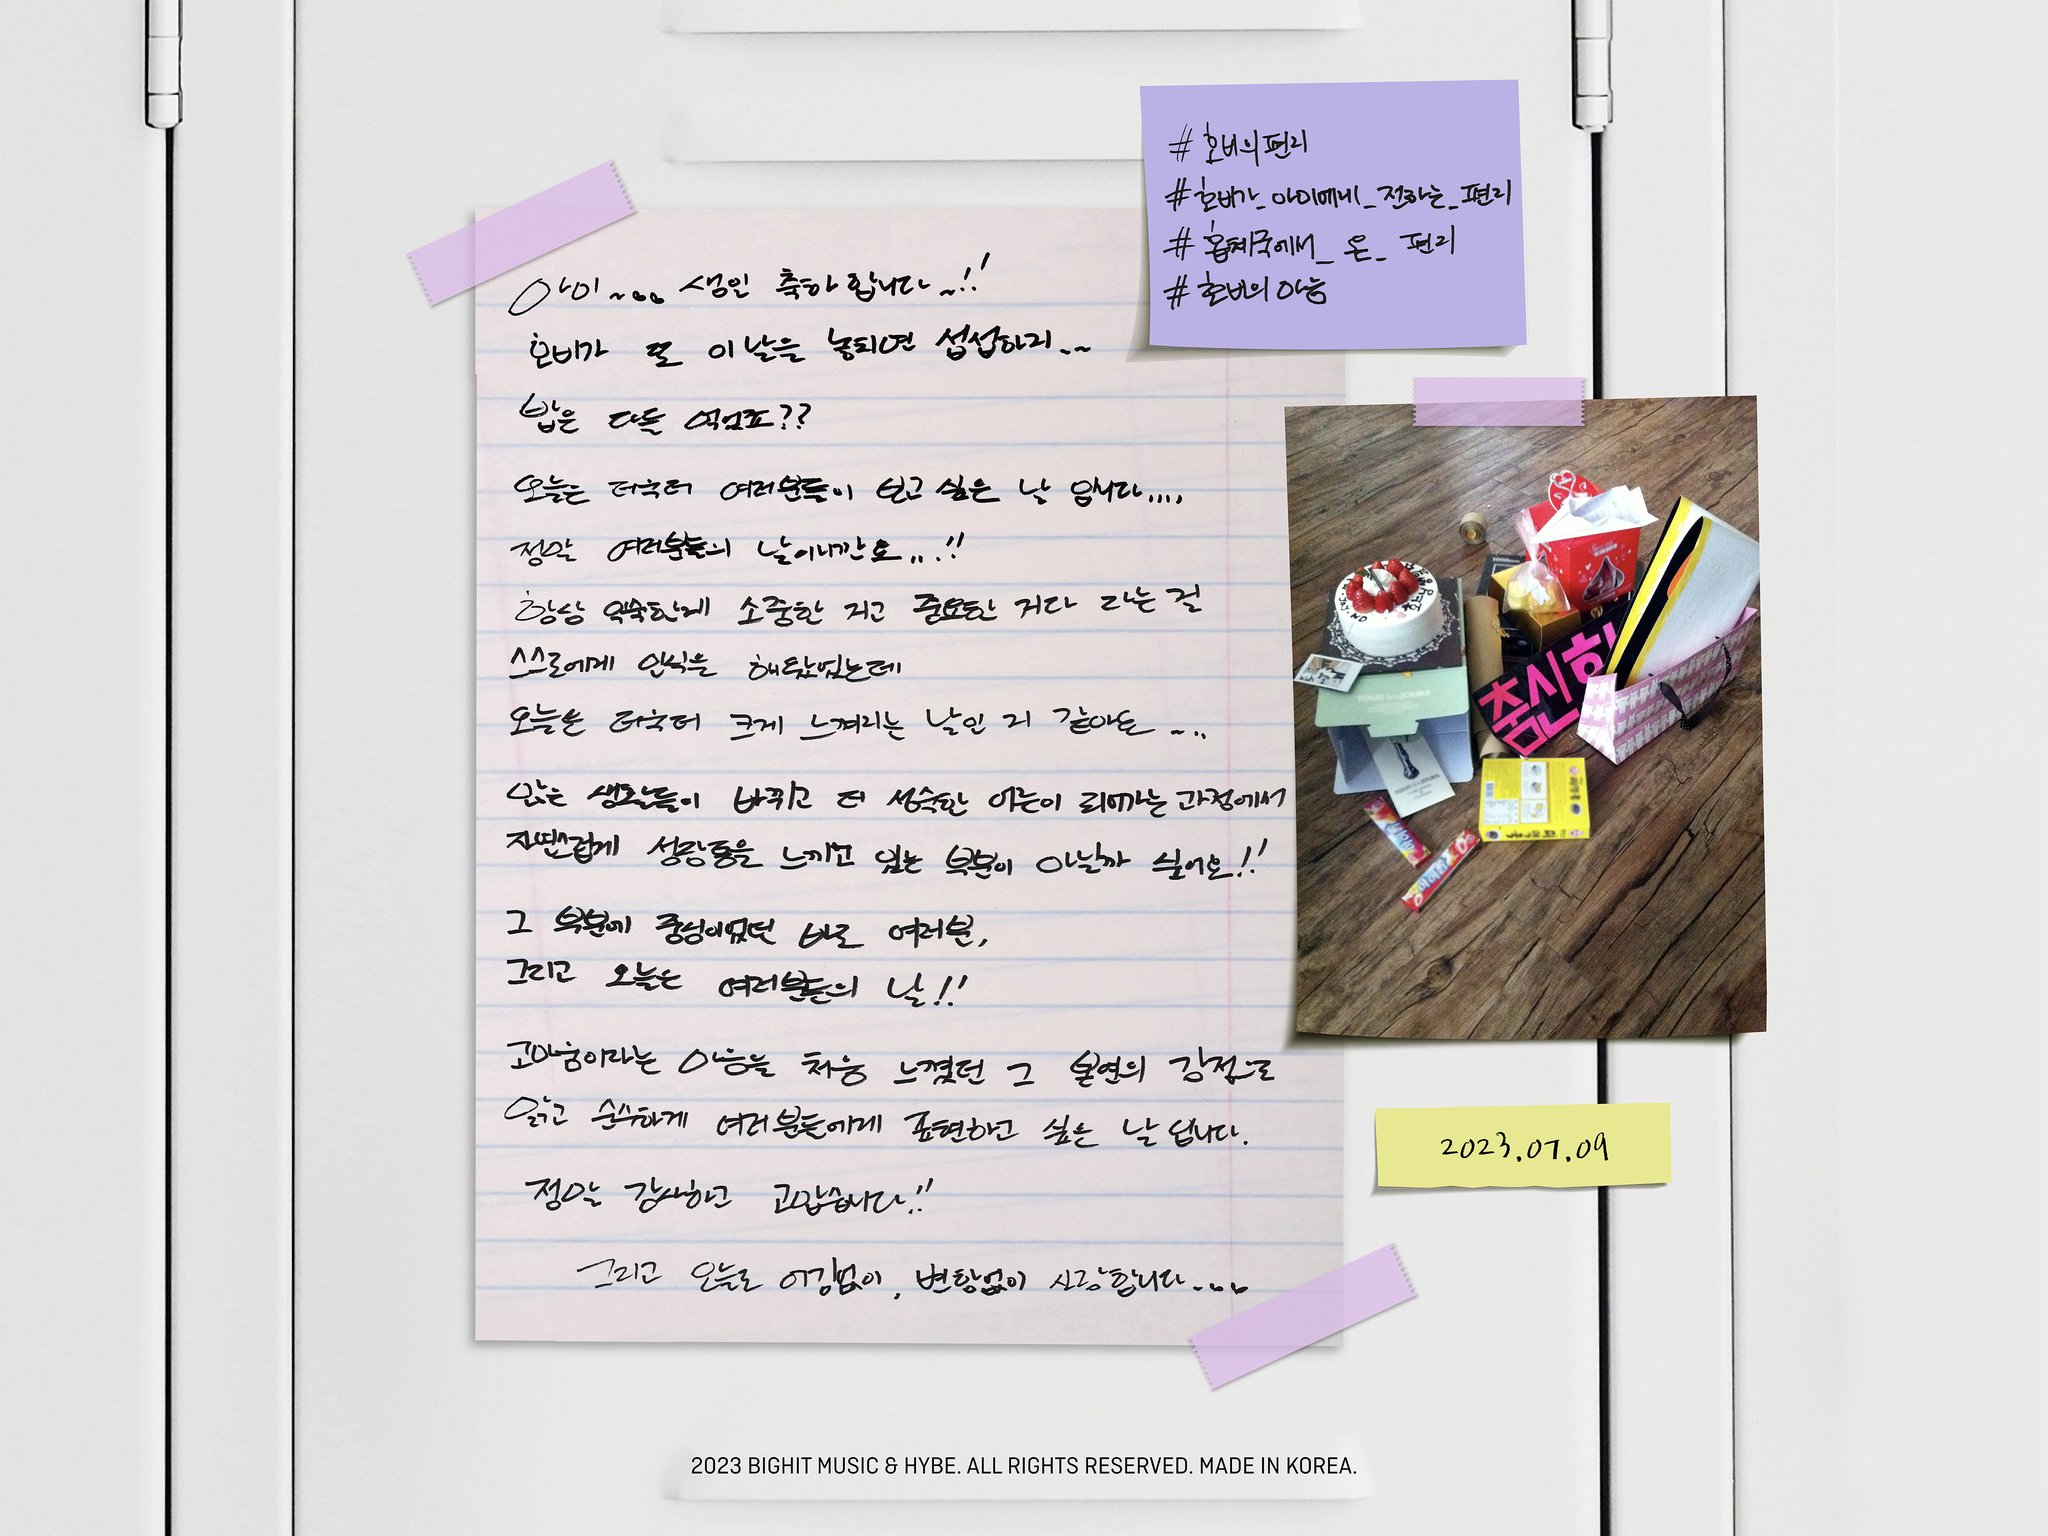 아미~... 생일 축하합니다~!!
호비가 또 이날을 놓치면 섭섭하지..~
밥은 다들 먹었죠??
오늘은 더욱더 여러분들이 보고 싶은 날 입니다....
정말 여러분들의 날이니깐요...!!
항상 익숙한게 소중한 거고 중요한 거다 라는 걸
스스로에게 인식을 해뒀었는데
오늘은 더욱더 크게 느껴지는 날인 거 같아요~..
많은 생활들이 바뀌고 더 성숙한 어른이 되어가는 과정에서
자연스럽게 성장통을 느끼고 있는 부분이 아닐까 싶어요!!
그 부분에 중심이었던 바로 여러분,
그리고 오늘은 여러분들의 날!!
고마움이라는 마음을 처음 느꼈던 그 본연의 감정으로
맑고 순수하게 여러분들에게 표현하고 싶은 날 입니다.
정말 감사하고 고맙습니다!!
그리고 오늘도 어김없이, 변함없이 사랑합니다...
#호비의편지
#호비가_아미에게_전하는_편지
#홉체국에서_온_편지
#호비의마음
춤신
TOUS les JOURS
마이쮸
2023.07.09
2023 BIGHIT MUSIC & HYBE. ALL RIGHTS RESERVED. MADE IN KOREA.